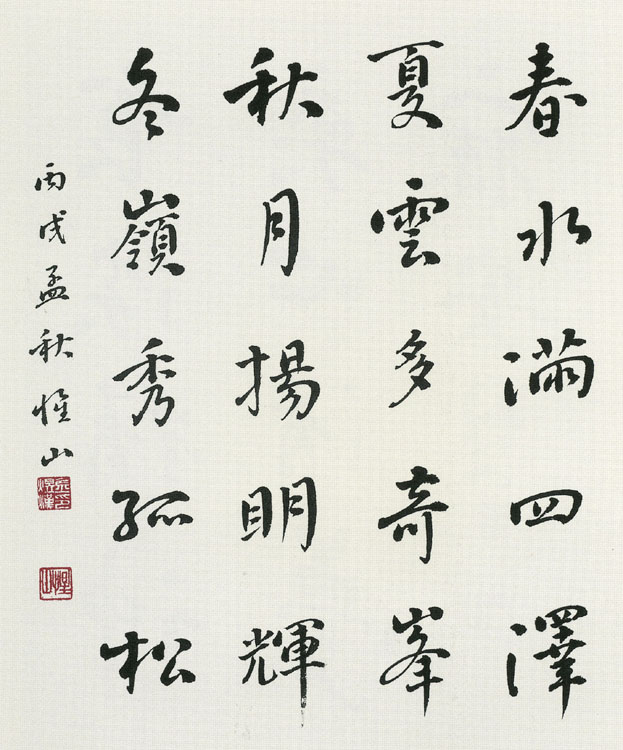 春水滿四澤
夏雲多奇峯
秋月揚明輝
冬嶺秀孤松
丙戌孟秋惟山